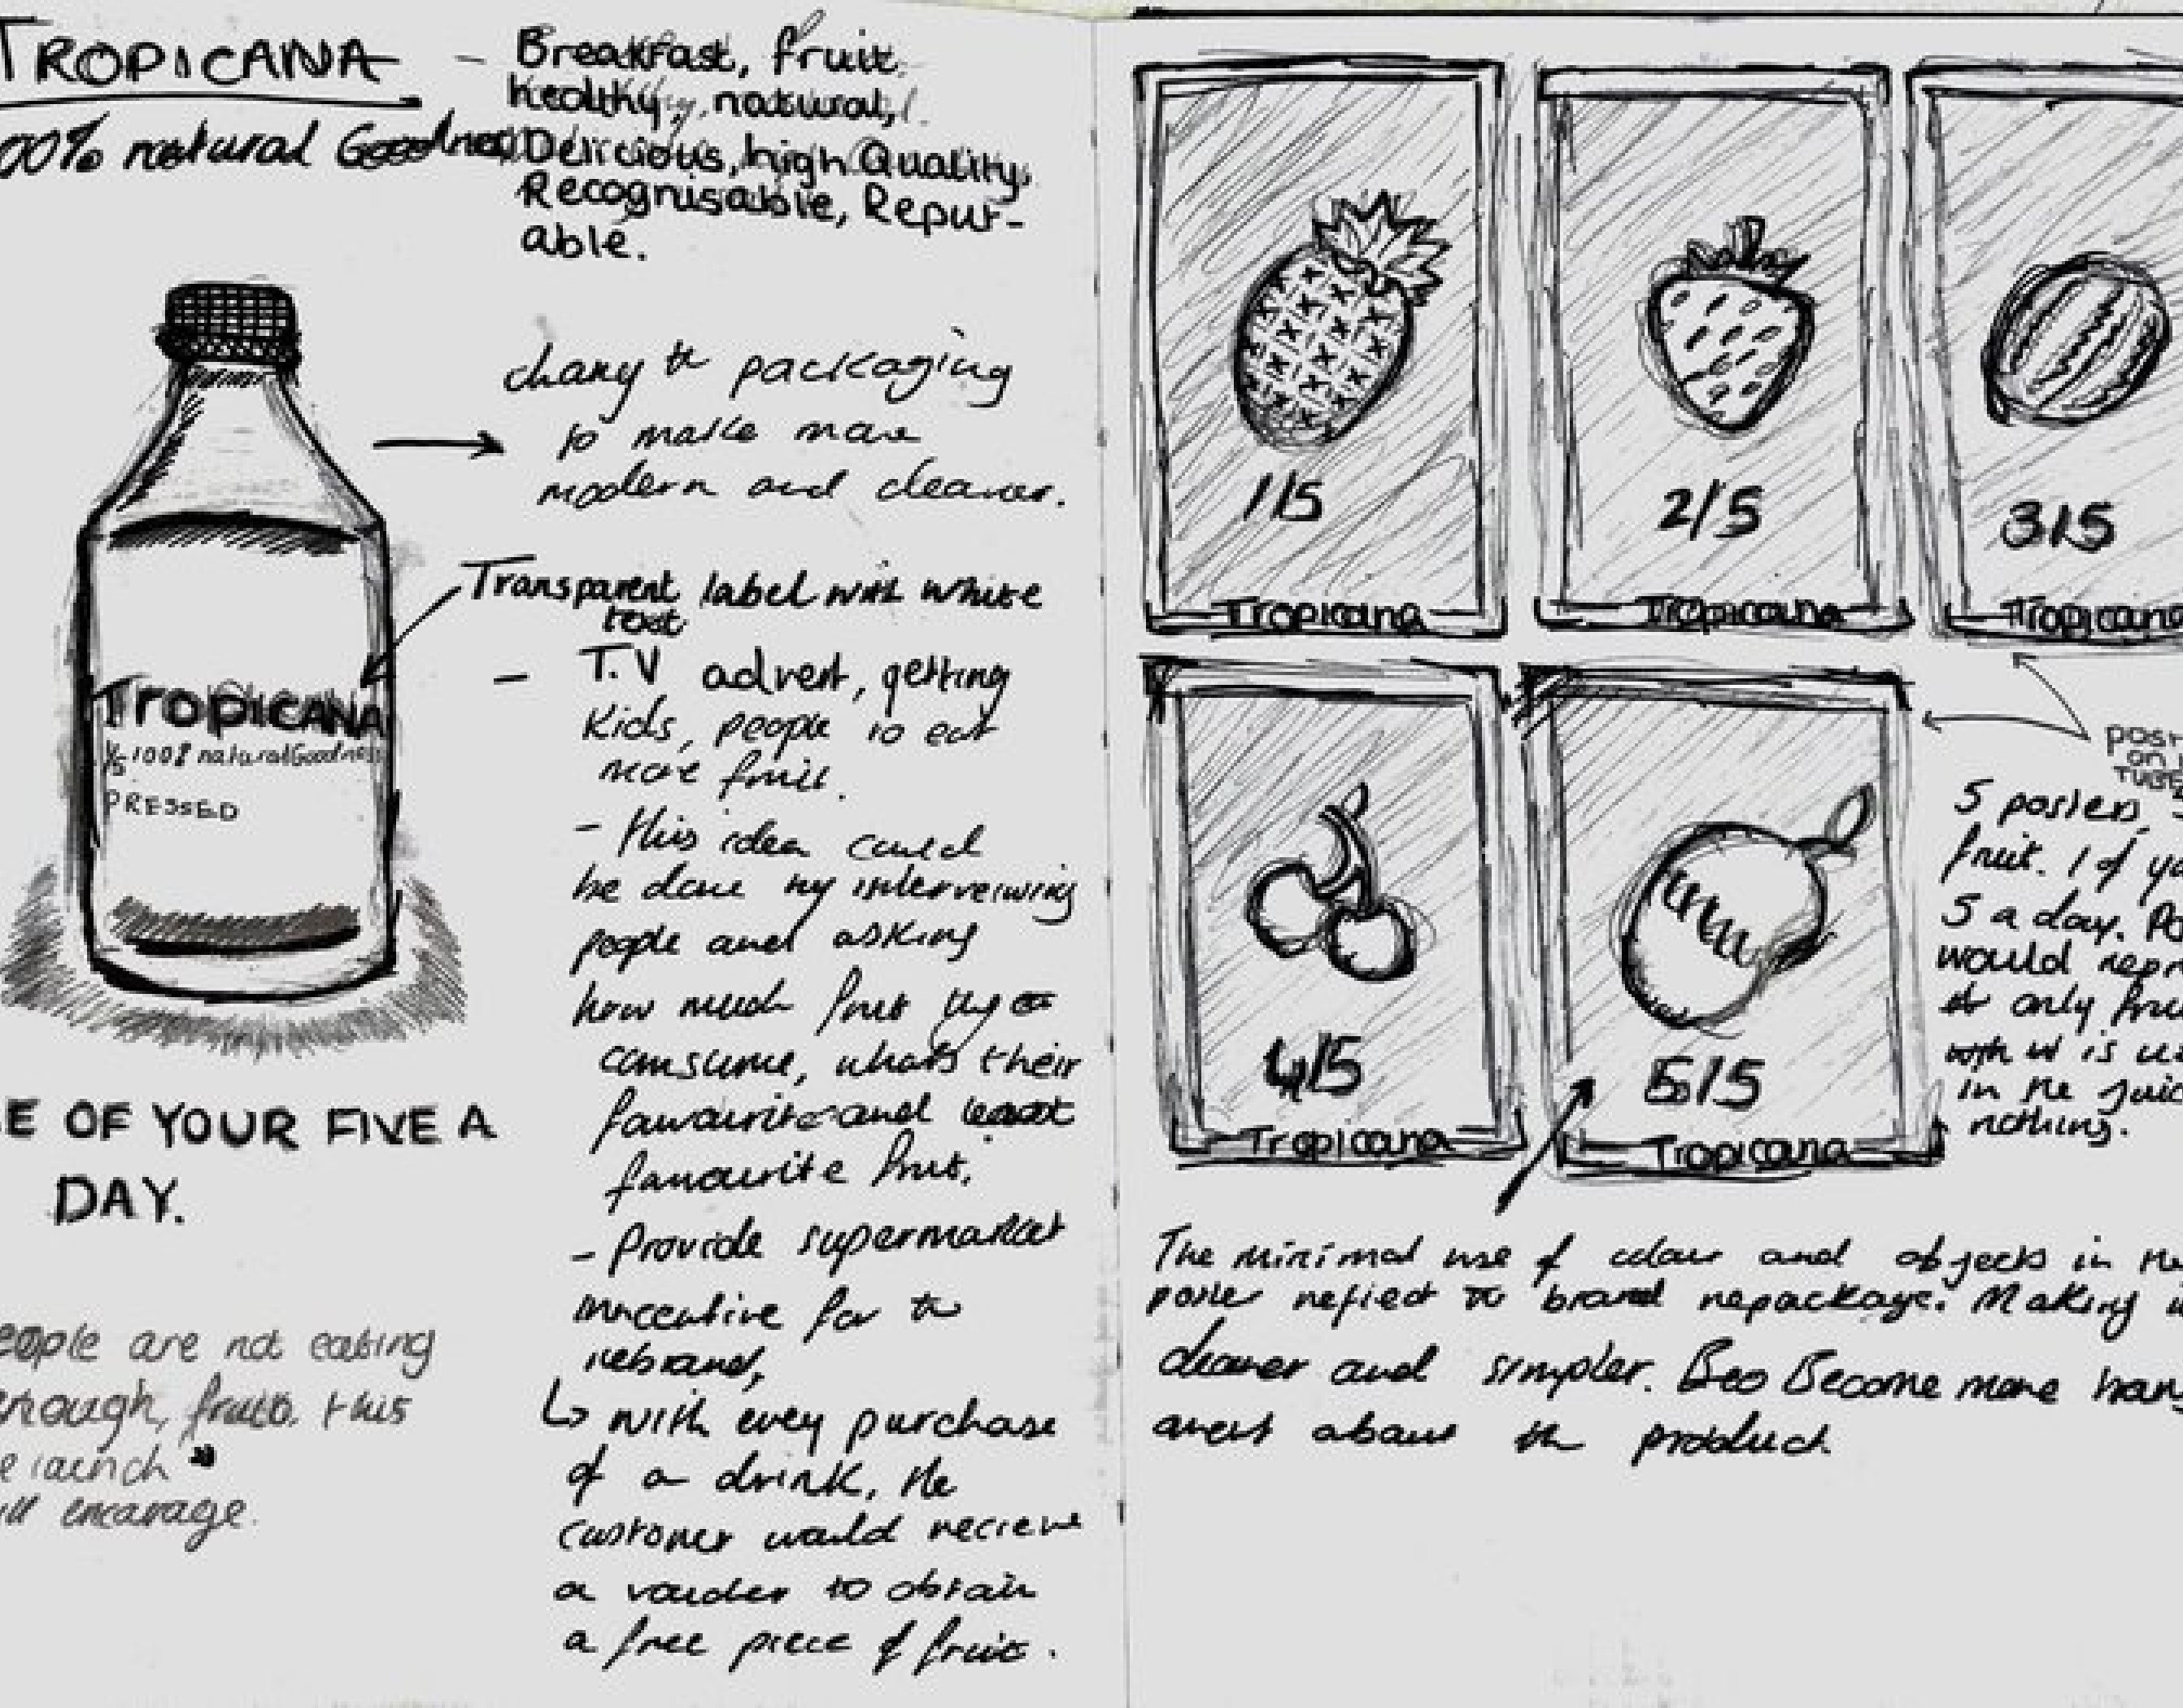 TROPICANA
00% natural Goodness
- Breakfast, fruit,
healthy, natural,
Delicious, high Quality,
Recognisable, Reput-
able.
packaging
to make more
modern and cleaner.
Transparent label with white
text
TROPICANA
1/5 100% natural Goodness
PRESSED
- T.V advert, getting
Kids, people to eat
more fruit.
- this idea could
be done by interveiwing
people and asking
how much fruit they
consume, whats their
favourite and least
favourite fruit.
- Provide supermarket
inncentive for the
rebrand,
↳ with every purchase
of a drink, the
customer would recieve
a voucher to obtain
a free piece of fruit.
E OF YOUR FIVE A
DAY.
eople are not eating
enough, fruits. this
launch
encourage.
1/5
Tropicana
2/5
Tropicana
3/5
Tropicana
4/5
Tropicana
5/5
Tropicana
on
TUBE
5 posters,
fruit. 1 of
5 a day.
would
only
is
in the
nothing.
The minimal use of colour and objects in the
poster reflect the brand repackage. Making
cleaner and simpler. Beo Become more
about the product